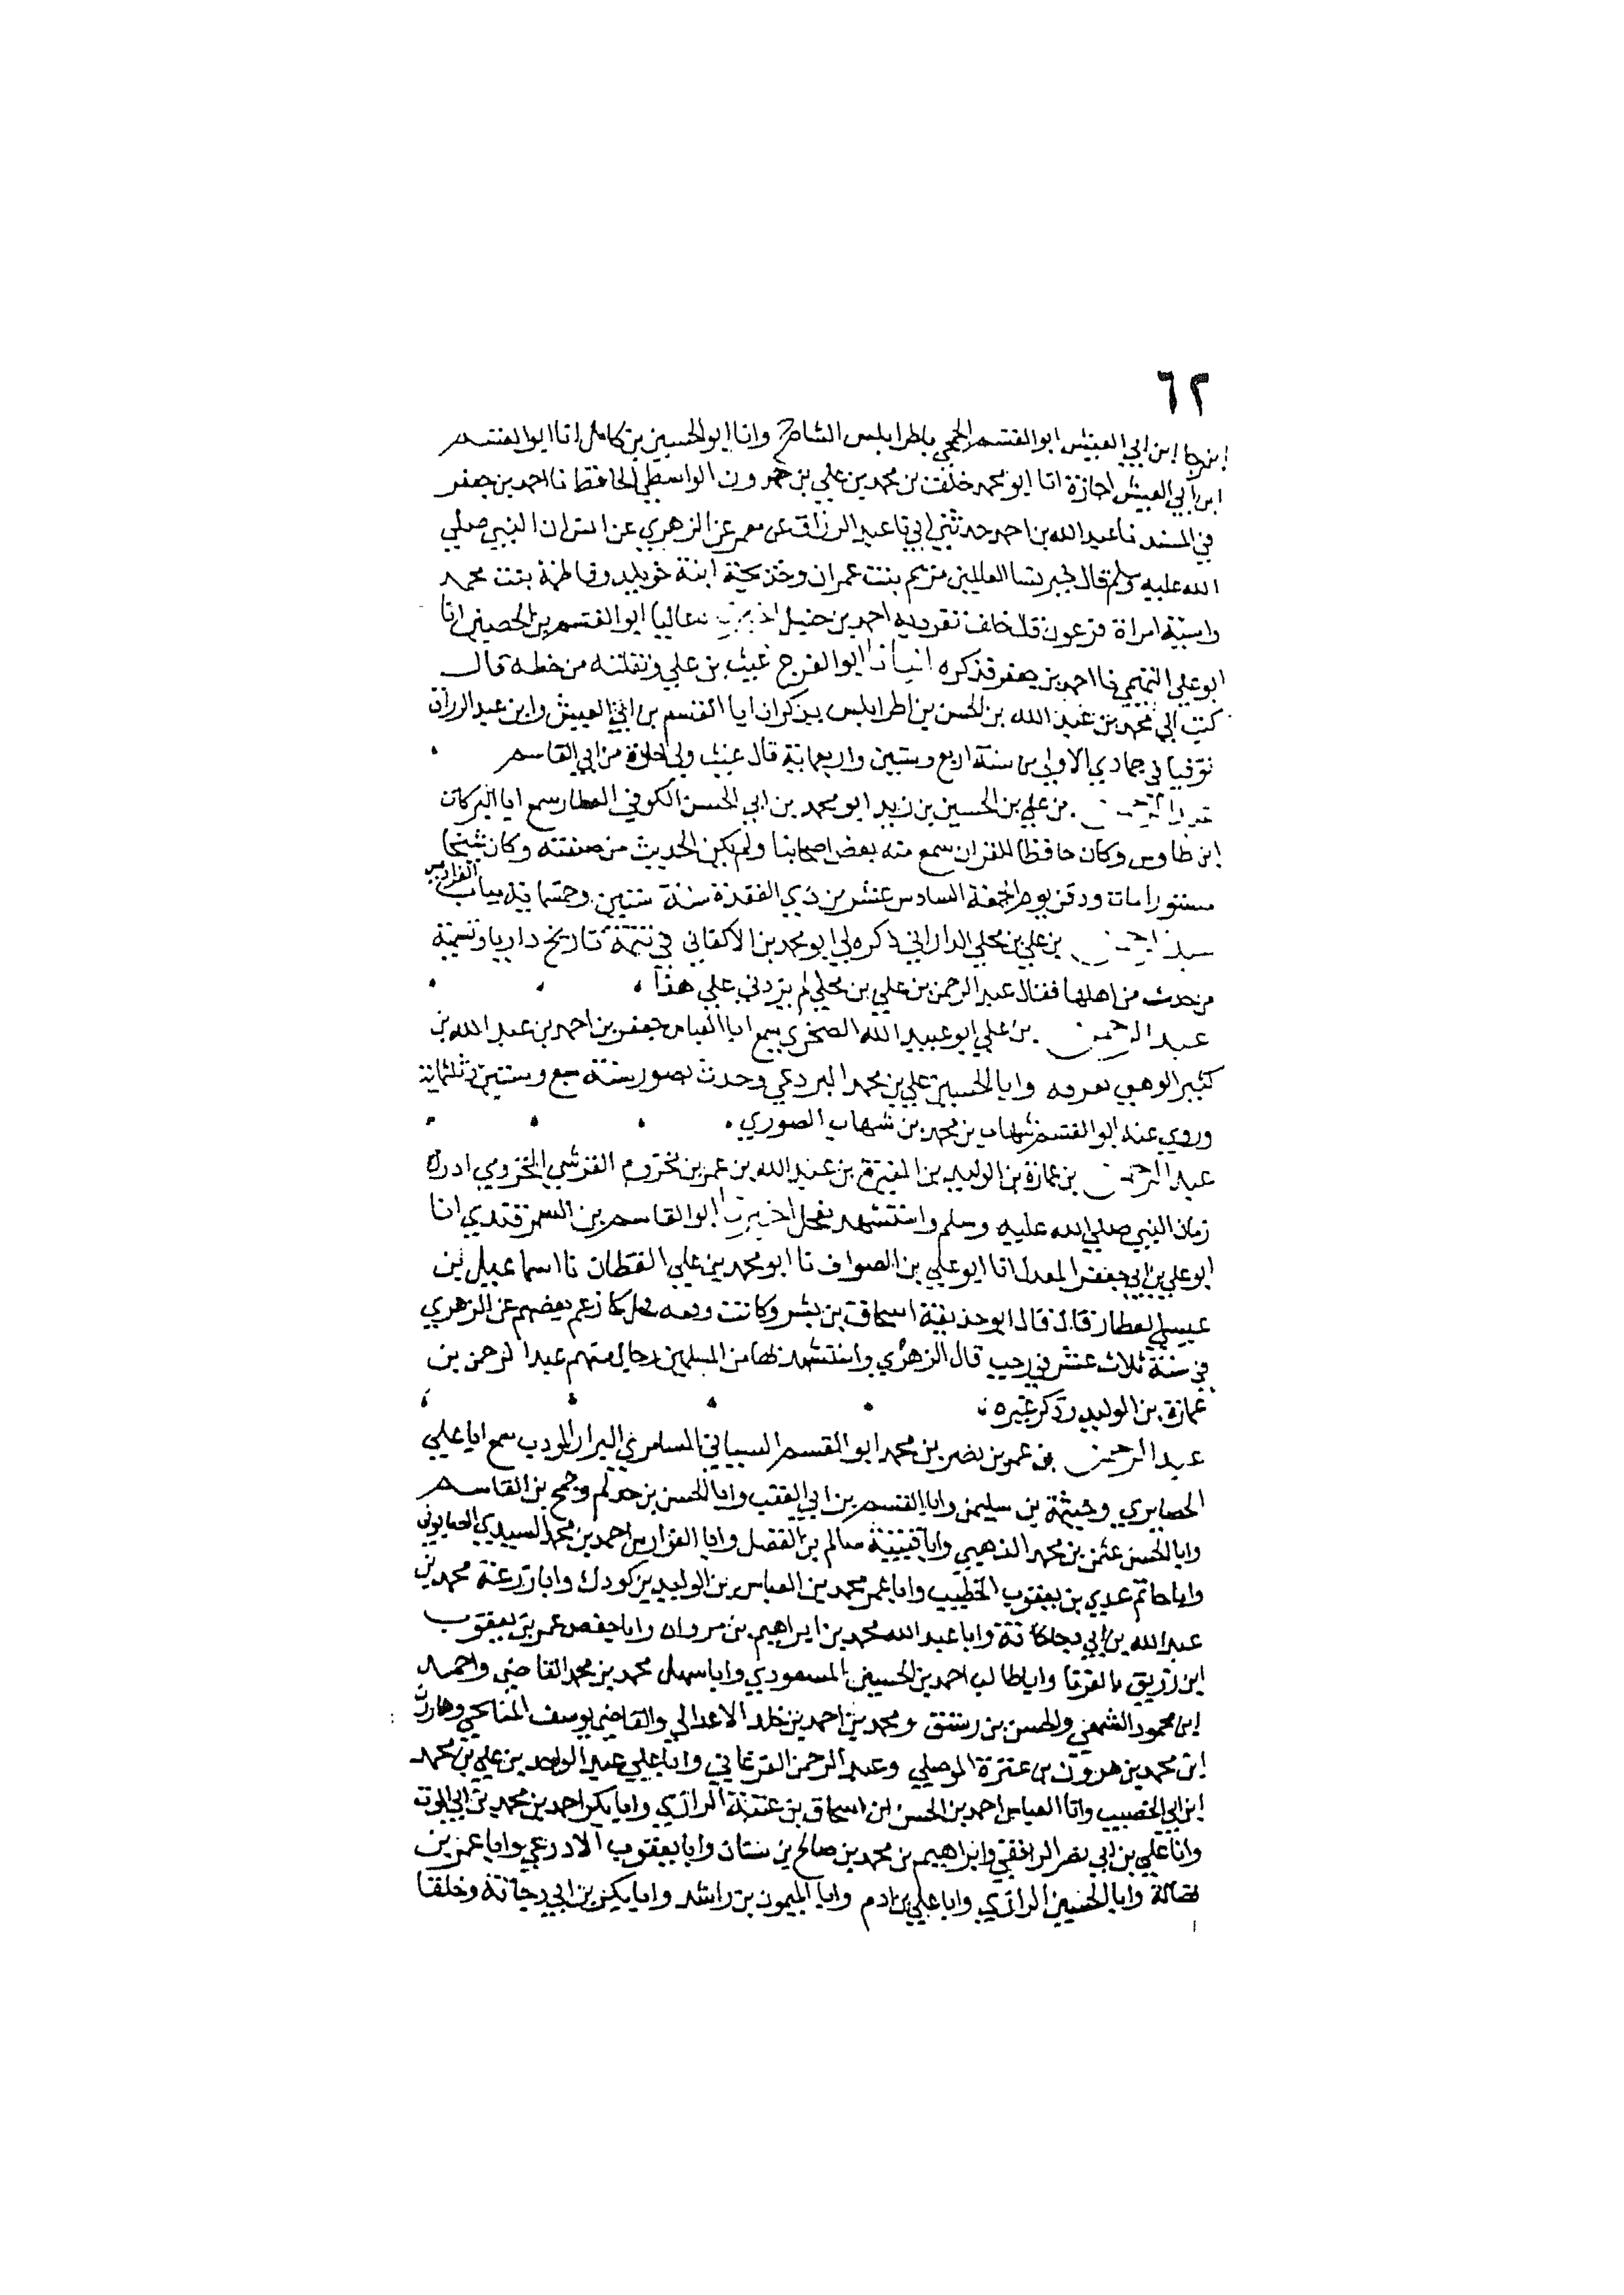 ٦٢
ابن رجا ابن ابي العيش ابو القسم الجمحي باطرابلس الشام ح وانا ابو الحسين بن كامل انا ابو القسم
ابن ابي العيش اجازة انا ابو محمد خلف بن محمد بن علي بن حمدون الواسطي الحافظ نا احمد بن جعفر
في المسند نا عبد الله بن احمد حدثني ابي نا عبد الرزاق عن معمر عن الزهري عن انس ان النبي صلي
الله عليه وسلم قال خير نسا العالمين مريم بنت عمران وخديجة ابنة خويلد وفاطمة بنت محمد
واسية امراة فرعون قال خلف تفرد به احمد بن حنبل عاليا ابو القسم بن الحصين انا
ابو علي التميمي نا احمد بن جعفر فذكره انبانا ابو الفرج غيث بن علي ونقلته من خطه قال
كتب الي محمد بن عبد الله بن الحسن بن اطرابلس يذكر ان ابا القسم بن ابي العيش وابن عبد الرزاق
توفيا في جمادي الاولي من سنة اربع وستين واربعماية قال غيث ولي اجازة من ابي القاسم
عبد الرحمن بن علي بن الحسين بن زيد ابو محمد بن ابي الحسن الكوفي العطار سمع ابا البركات
ابن طاوس وكان حافظا للقران سمع منه بعض اصحابنا ولم يكن الحديث من صنعته وكان شيخا
مستورا مات ودفن يوم الجمعة السادس عشر من ذي القعدة سنة ستين وخمسماية بباب الفراديس
عبد الرحمن بن علي بن محلي الداراني ذكره لي ابو محمد بن الاكفاني في تتمة تاريخ داريا وتسمية
من حدث من اهلها فقال عبد الرحمن بن علي بن محلي لم يزدني علي هذا
عبد الرحمن بن علي ابو عبيد الله الصخري سمع ابا العباس جعفر بن احمد بن عبد الله بن
كثير الوهبي بعرقه وابا الحسين علي بن محمد البردعي وحدث بصور سنة سبع وستين وثلثماية
وروي عنه ابو القسم شهاب بن محمد بن شهاب الصوري
عبد الرحمن بن عمارة بن الوليد بن المغيرة بن عبد الله بن عمر بن مخزوم القرشي المخزومي ادرك
زمان النبي صلي الله عليه وسلم واستشهد بفحل اخبرنا ابو القاسم بن السمرقندي انا
ابو علي بن ابي جعفر المعدل انا ابو علي بن الصواف نا ابو محمد بن علي القطان نا اسماعيل بن
عيسي العطار قال قال ابو حذيفة اسحاق بن بشر وكانت وقعه فحل كما زعم بعضهم عن الزهري
في سنة ثلاث عشر في رجب قال الزهري واستشهد بها من المسلمين رجال منهم عبد الرحمن بن
عمارة بن الوليد وذكر غيره
عبد الرحمن بن عمر بن نصر بن محمد ابو القسم السيباني السامري البزار المودب سمع ابا علي
الحصايري وخيثمة بن سليمن وابا القسم بن ابي العقب وابا الحسن بن حذلم وجمح بن القاسم
وابا الحسن عثمن بن محمد الذهبي وابا قتيبة سالم بن الفضل وابا الفوارس احمد بن محمد السيدي الصابوني
وابا حاتم عدي بن يعقوب الخطيب وابا عمر محمد بن العباس بن الوليد بن كودك وابا زرعة محمد بن
عبد الله بن ابي دجانة وابا عبد الله محمد بن ابراهيم بن مروان وابا حفص عمر بن يعقوب
ابن زريق وابا طالب احمد بن الحسين المسعودي وابا سهل محمد بن محمد القاضي واحمد
ابن محمود الشمعي والحسن بن رشيق ومحمد بن احمد بن خلد الاعدالي والقاضي يوسف الميانجي وهارون
ابن محمد بن هرون بن عنترة الموصلي وعبد الرحمن الفرغاني وابا علي عبد الواحد بن علي بن محمد
ابن ابي الخصيب وابا العباس احمد بن الحسن بن اسحاق بن عتبة الرازي وابا بكر احمد بن محمد بن ابي الموت
وابا علي بن ابي نصر الرافقي وابراهيم بن محمد بن صالح بن سنان وابا يعقوب الاذرعي وابا عمر بن
فضالة وابا الحسين الرازي وابا علي بن ادم وابا الميمون بن راشد وابا بكر بن ابي دجانة وخلقا